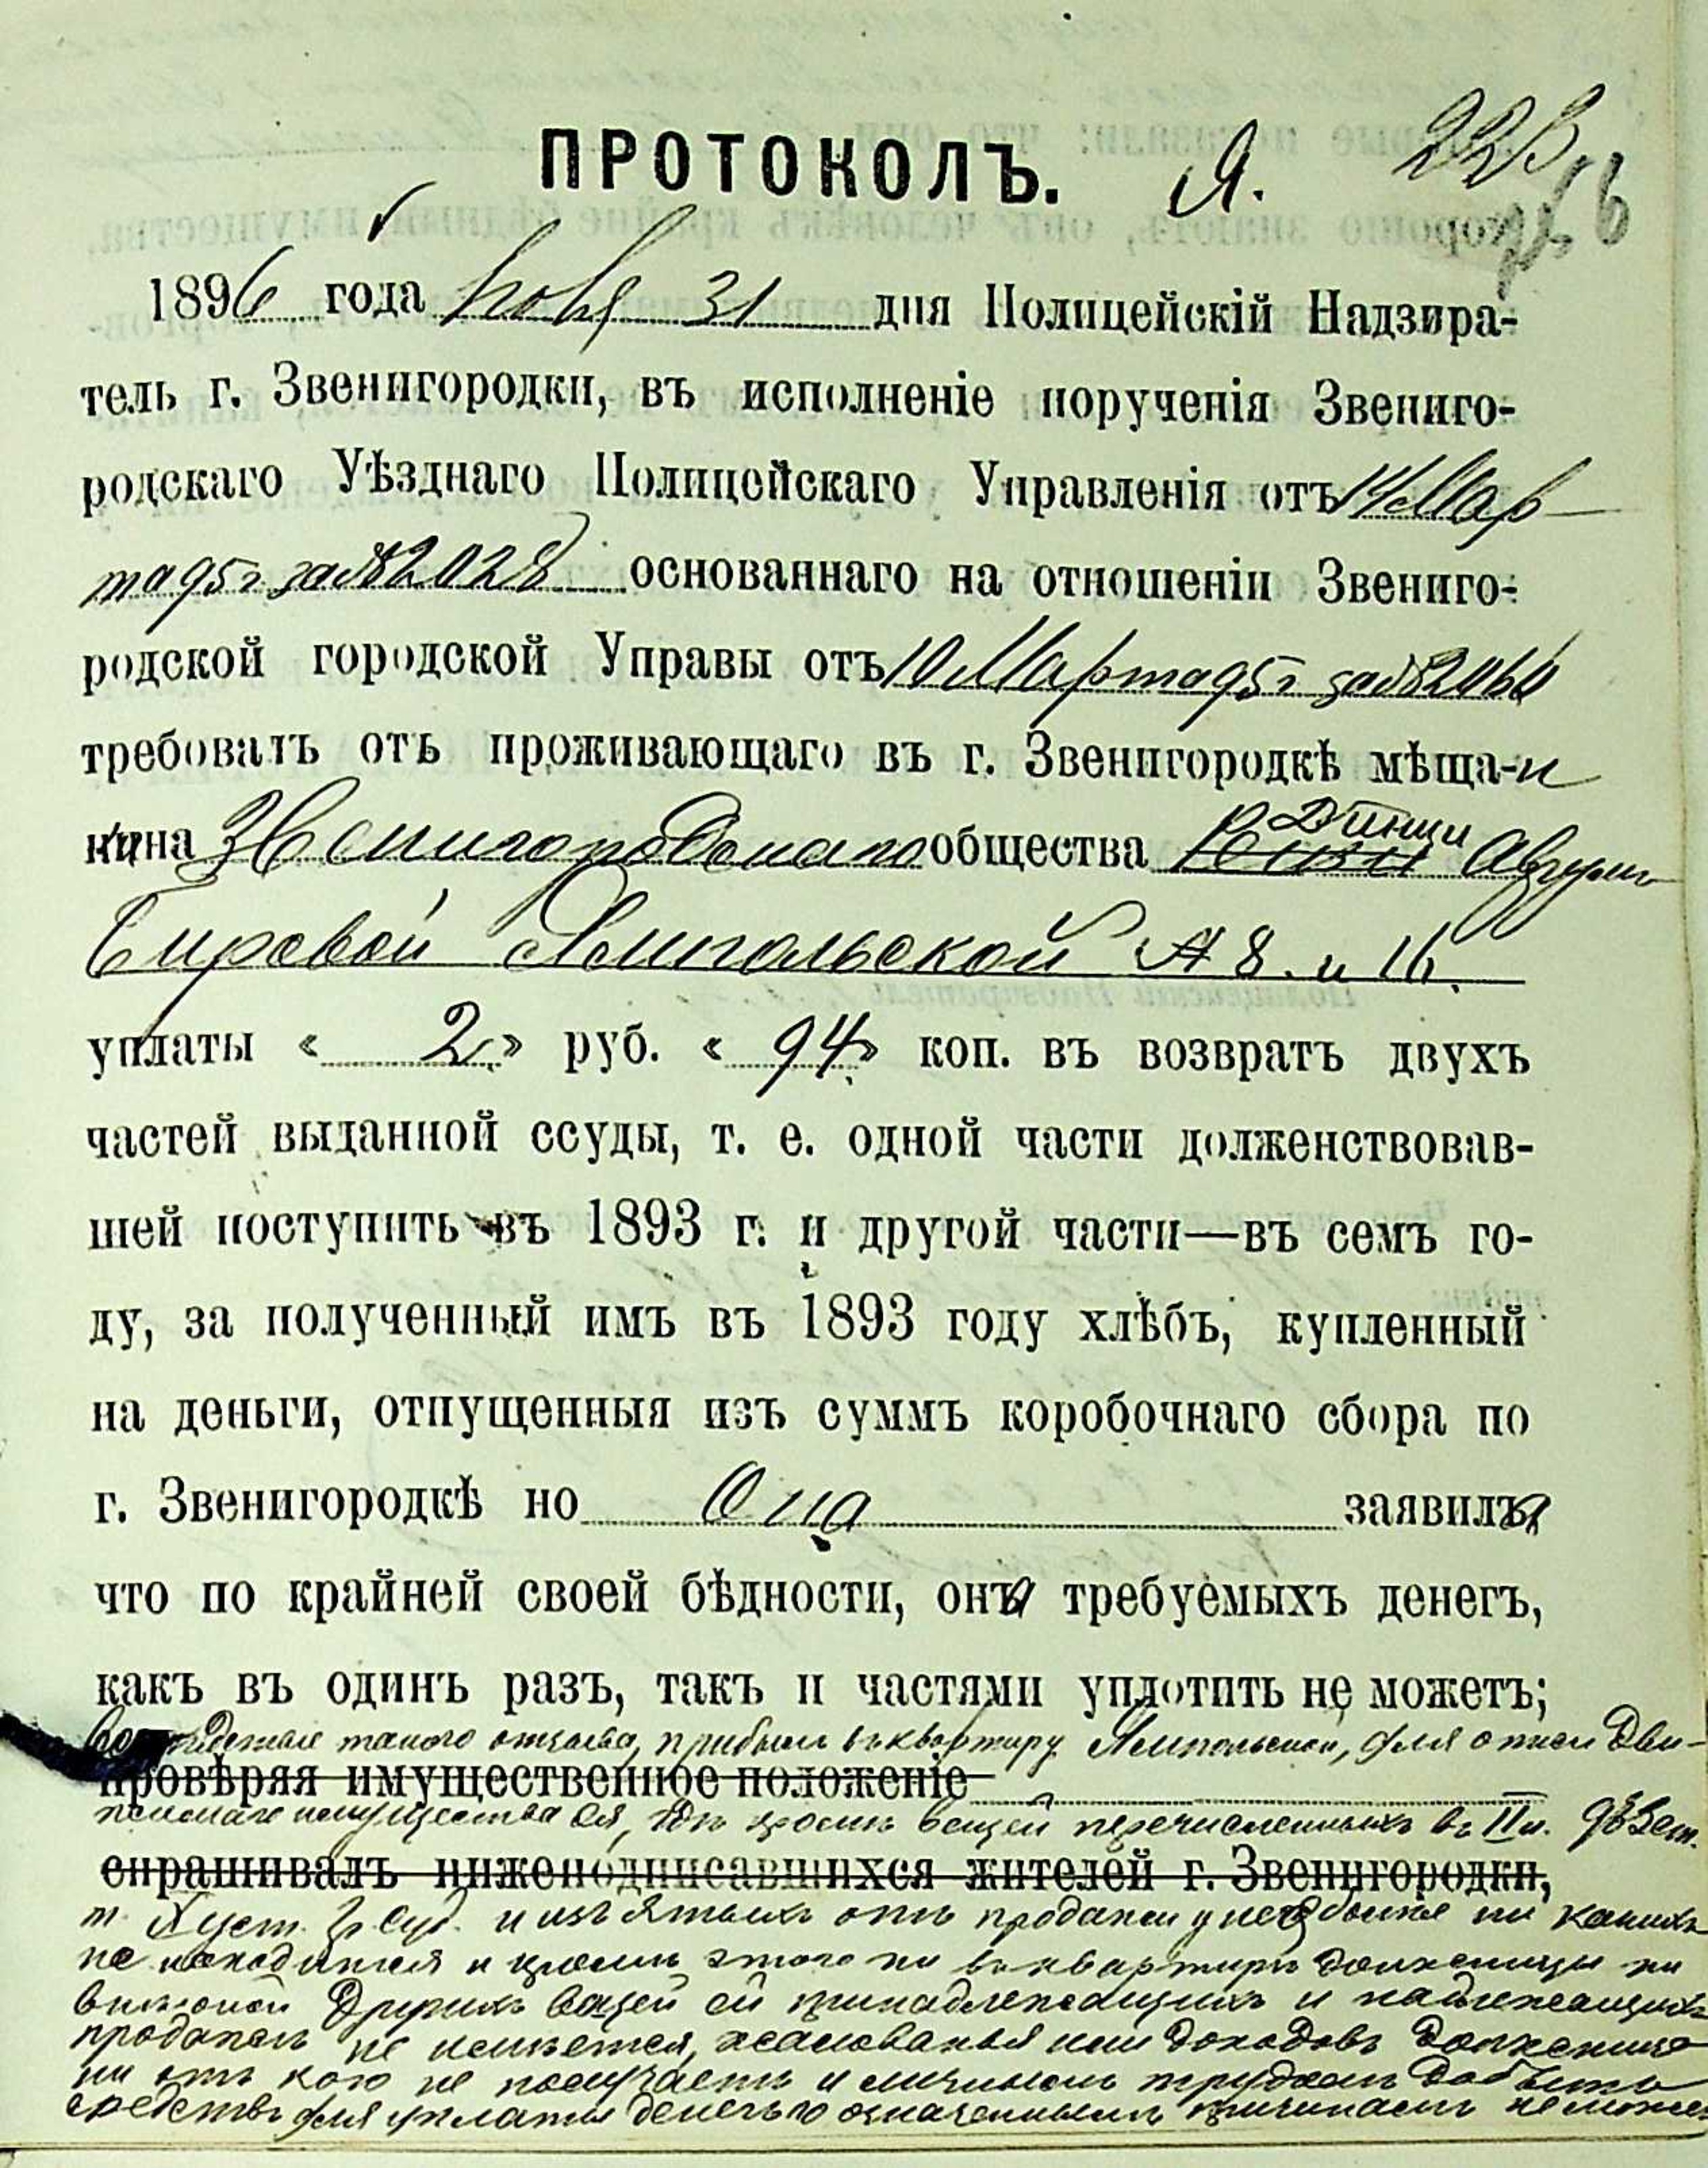 ПРОТОКОЛЪ. Я. 228
1896 года 31 дня Полицейскій Надзира-
тель г. Звенигородки, въ исполненіе порученія Звениго-
родскаго Уѣзднаго Полицейскаго Управленія отъ 14 Мар
та 95 г за № 2028 основаннаго на отношеніи Звениго-
родской городской Управы отъ 10 Марта 95 г за № 2060
требовалъ отъ проживающаго въ г. Звенигородкѣ мѣща-н
кина Звенигородскаго общества
Ямпольской № 8. и 16.
уплаты « 2 » руб. « 94 » коп. въ возвратъ двухъ
частей выданной ссуды, т. е. одной части долженствовав-
шей поступить въ 1893 г. и другой части—въ семъ го-
ду, за полученный имъ въ 1893 году хлѣбъ, купленный
на деньги, отпущенныя изъ суммъ коробочнаго сбора по
г. Звенигородкѣ но Она заявила
что по крайней своей бѣдности, она требуемыхъ денегъ,
какъ въ одинъ разъ, такъ и частями уплотить не можетъ;
такого отзыва, прибылъ въ квартиру Ямпольской, для описи дви-
провѣряя имущественное положеніе
жимаго имущества ея, кромѣ вещей перечисленныхъ въ II п. 973 ст.
спрашивалъ нижеподписавшихся жителей г. Звенигородки,
уст. гр. суд. и изъятыхъ отъ продажи никакихъ
не находится и кромѣ этого въ квартирѣ должницы ни
другихъ вещей ей принадлежащихъ и надлежащихъ
продажѣ не имѣется, жалованья или доходовъ должница
ни отъ кого не получаетъ и личнымъ трудомъ добыть
средствъ для уплаты денегъ по означеннымъ причинамъ не может